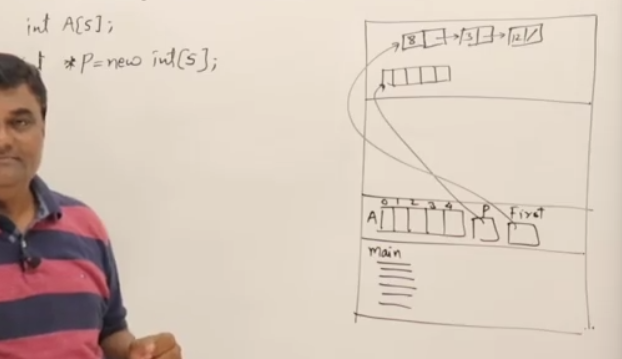 int A[5];
*P=new int[5];
8 3 12 /
0 1 2 3 4
A P First
main